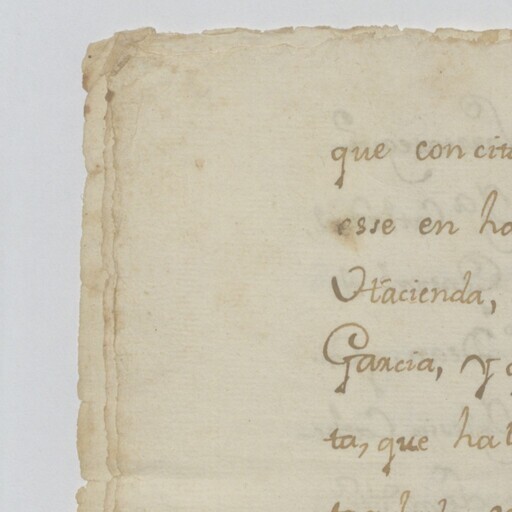 que con cit
esse en ha
Hacienda,
Garcia, y
ta, que ha